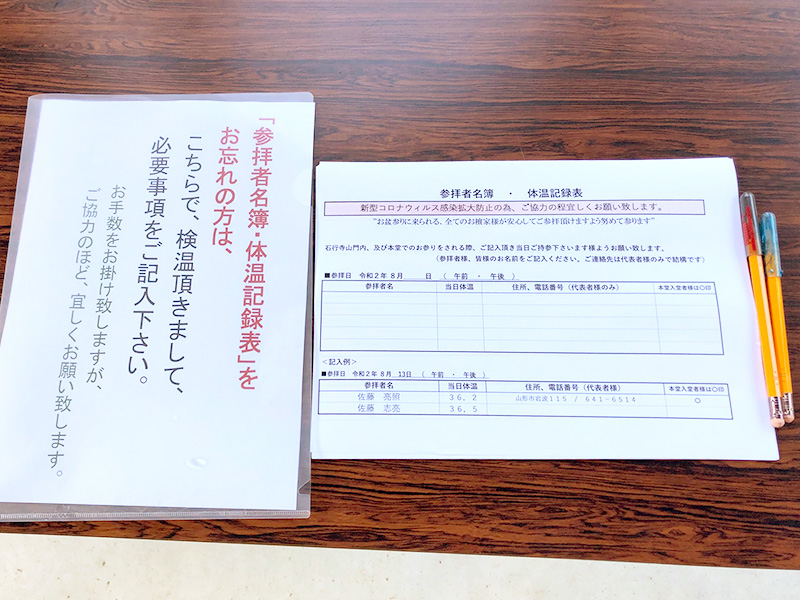 「参拝者名簿・体温記録表」を
お忘れの方は、
こちらで、検温頂きまして、
必要事項をご記入下さい。
お手数をお掛け致しますが、
ご協力のほど、宜しくお願い致します。
参拝者名簿 ・ 体温記録表
新型コロナウィルス感染拡大防止の為、ご協力の程宜しくお願い致します。
"お盆参りに来られる、全てのお檀家様が安心してご参拝頂けますよう努めて参ります"
石行寺山門内、及び本堂でのお参りをされる際、ご記入頂き当日ご持参下さいます様よろしくお願い致します。
(参拝者様、皆様のお名前をご記入ください。ご連絡先は代表者様のみで結構です)
■参拝日 令和２年８月 日 ( 午前 ・ 午後 )
参拝者名 当日体温 住所、電話番号(代表者様のみ) 本堂入堂者様は〇印
＜記入例＞
■参拝日 令和２年８月 13日 ( 午前 ・ 午後 )
参拝者名 当日体温 住所、電話番号(代表者様) 本堂入堂者様は〇印
佐藤 亮照 ３６,２ 山形市岩波１１５ / ６４１-６５１４ 〇
佐藤 志亮 ３６,５